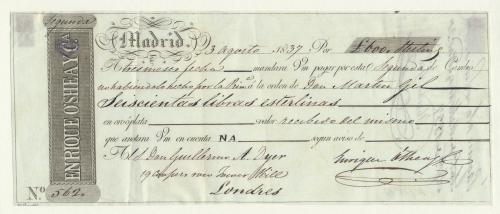 Segunda
ENRIQUE O'SHEA Y Cª
Madrid, 3 agosto 1837. Por £600,, Sterling
A tres meses fecha mandará Vm pagar por esta Segunda de Cambio
no habiendolo hecho por la Primª á la orden de Don Martin Gil
Seiscientas libras esterlinas
en oro ó plata valor recibido del mismo
que anotará Vm en cuenta NA segun aviso de
A D. Don Guillermo A. Dyer Enrique O'Shea y Cª
19 Row Tower Hill
Londres
Nº 562,,